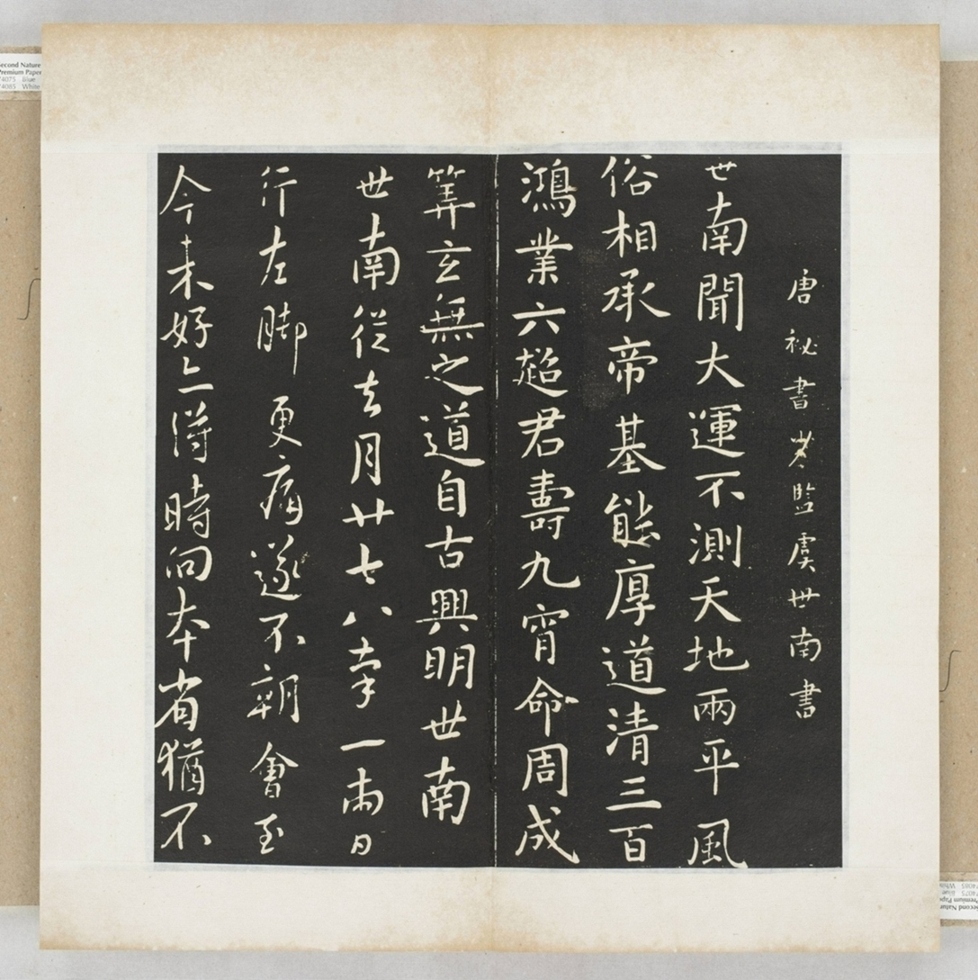 唐祕書少監虞世南書
世南聞大運不測天地兩平風
俗相承帝基能厚道清三百
鴻業六超君壽九霄命周成
筭玄無之道自古興明世南
世南從去月廿七八率一兩日
行左脚更痛遂不朝會至
今未好亦得時向本省猶不
econd Nature
Premium Paper
74075 Blue
74085 White